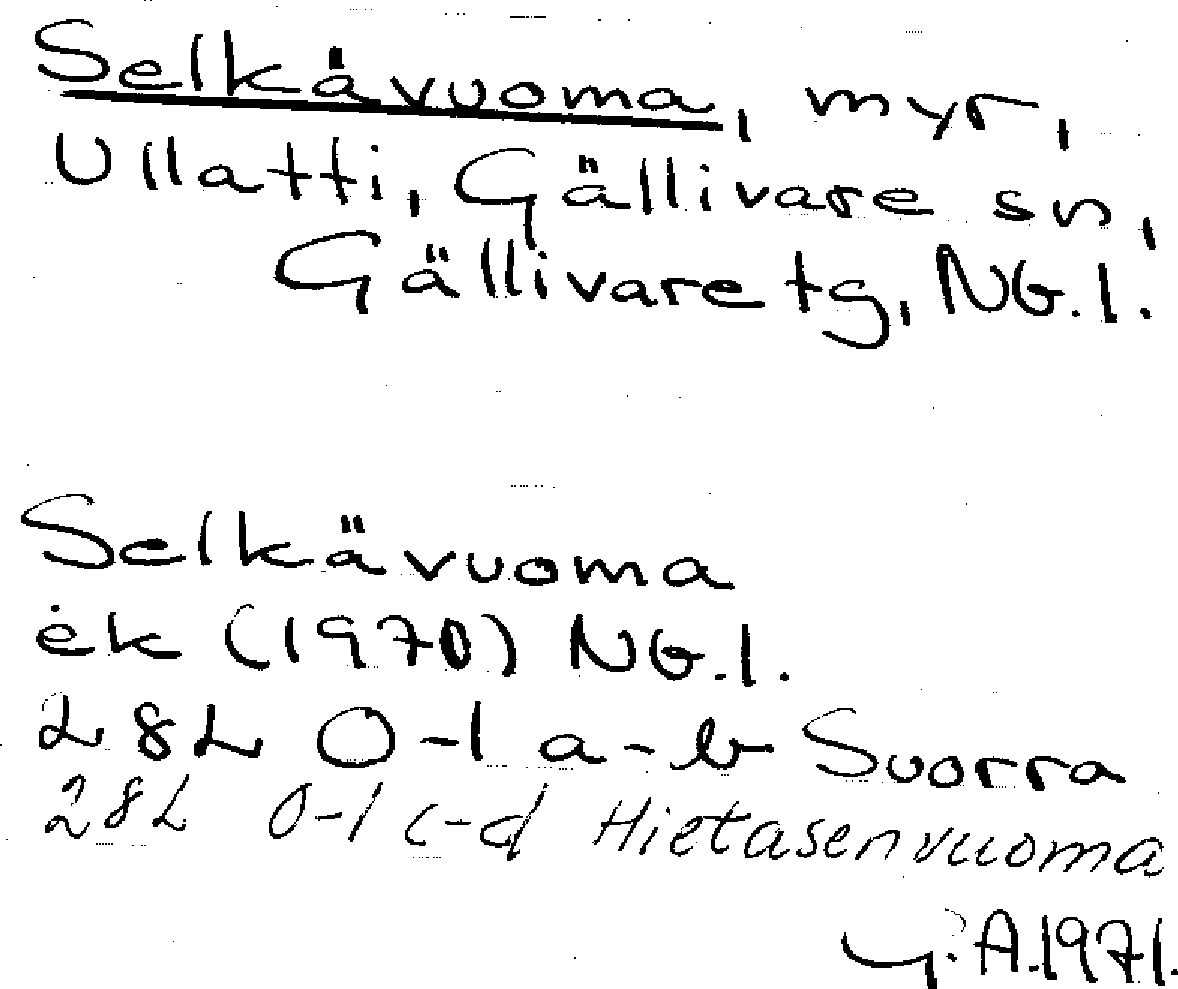 Selkävuoma, myr,
Ullatti, Gällivare sn,
Gällivare tg, NG. l.
Selkävuoma
ek (1970) NG. l.
28L 0-1 a-b Suorra
28L 0-1 c-d Hietasenvuoma
A. 1971.